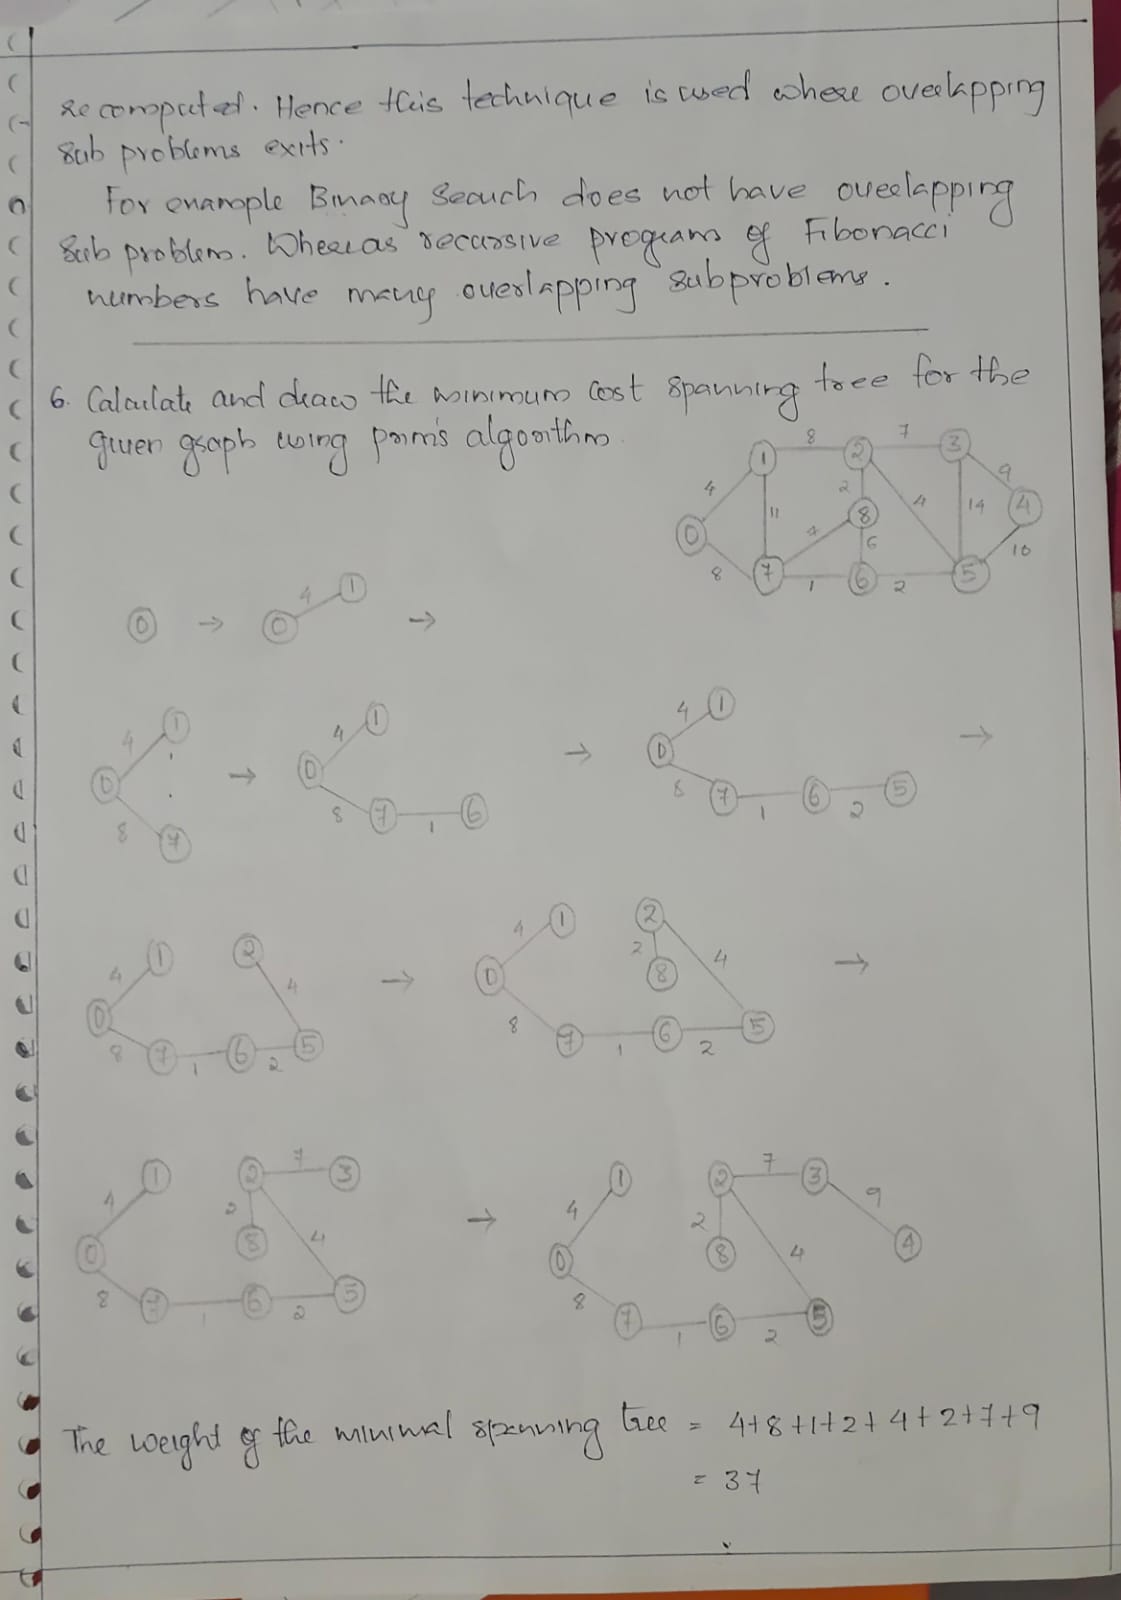 recomputed. Hence this technique is used where overlapping
sub problems exits.
For example Binary Search does not have overlapping
sub problem. Whereas recursive program of Fibonacci
numbers have many overlapping subproblems.
6. Calculate and draw the minimum cost spanning tree for the
given graph using prim's algorithm.
8 7
1 2 3
4 2 9
11 4 14 4
0 8
4 6 10
8 7 1 6 2 5
0 → 0 4 1 →
4 1 4 1 4 1
0 → 0 → 0 →
8 7 8 7 1 6 8 7 1 6 2 5
4 1 2 4 1 2
0 4 → 0 2 8 4 →
8 7 1 6 2 5 8 7 1 6 2 5
1 2 7 3 1 2 7 3
4 2 4 2 9
0 8 4 → 0 8 4 4
8 7 1 6 2 5 8 7 1 6 2 5
The weight of the minimal spanning tree = 4+8+1+2+4+2+7+9
= 37